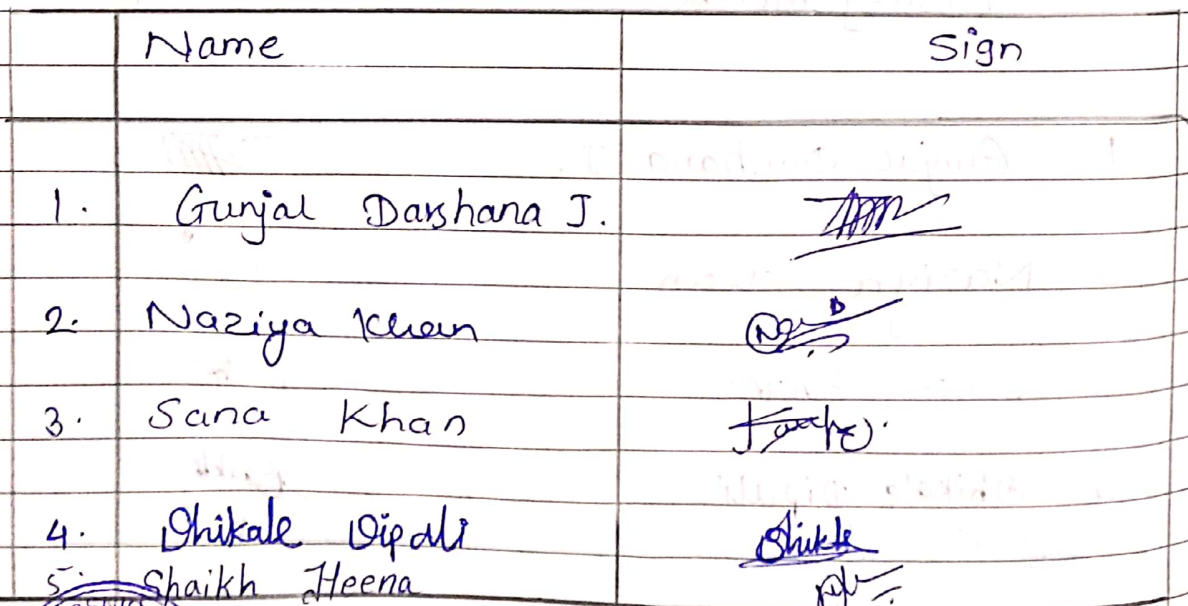 Name Sign
1. Gunjal Darshana J.
2. Naziya Khan
3. Sana Khan
4. Dhikale Dipali
5. Shaikh Heena